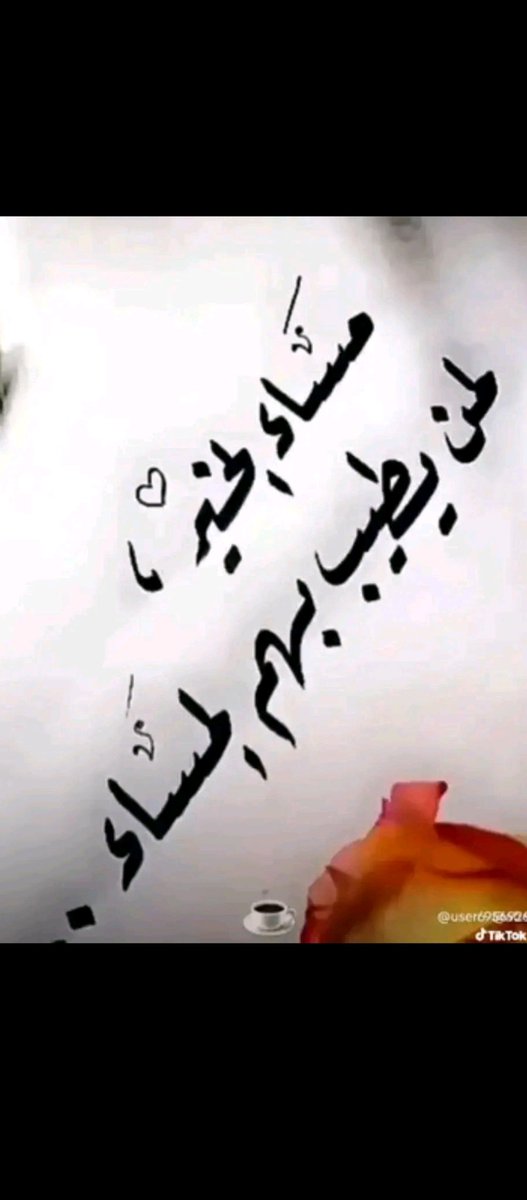 مساء الخير،
لمن يطيب بهم المساء..
TikTok